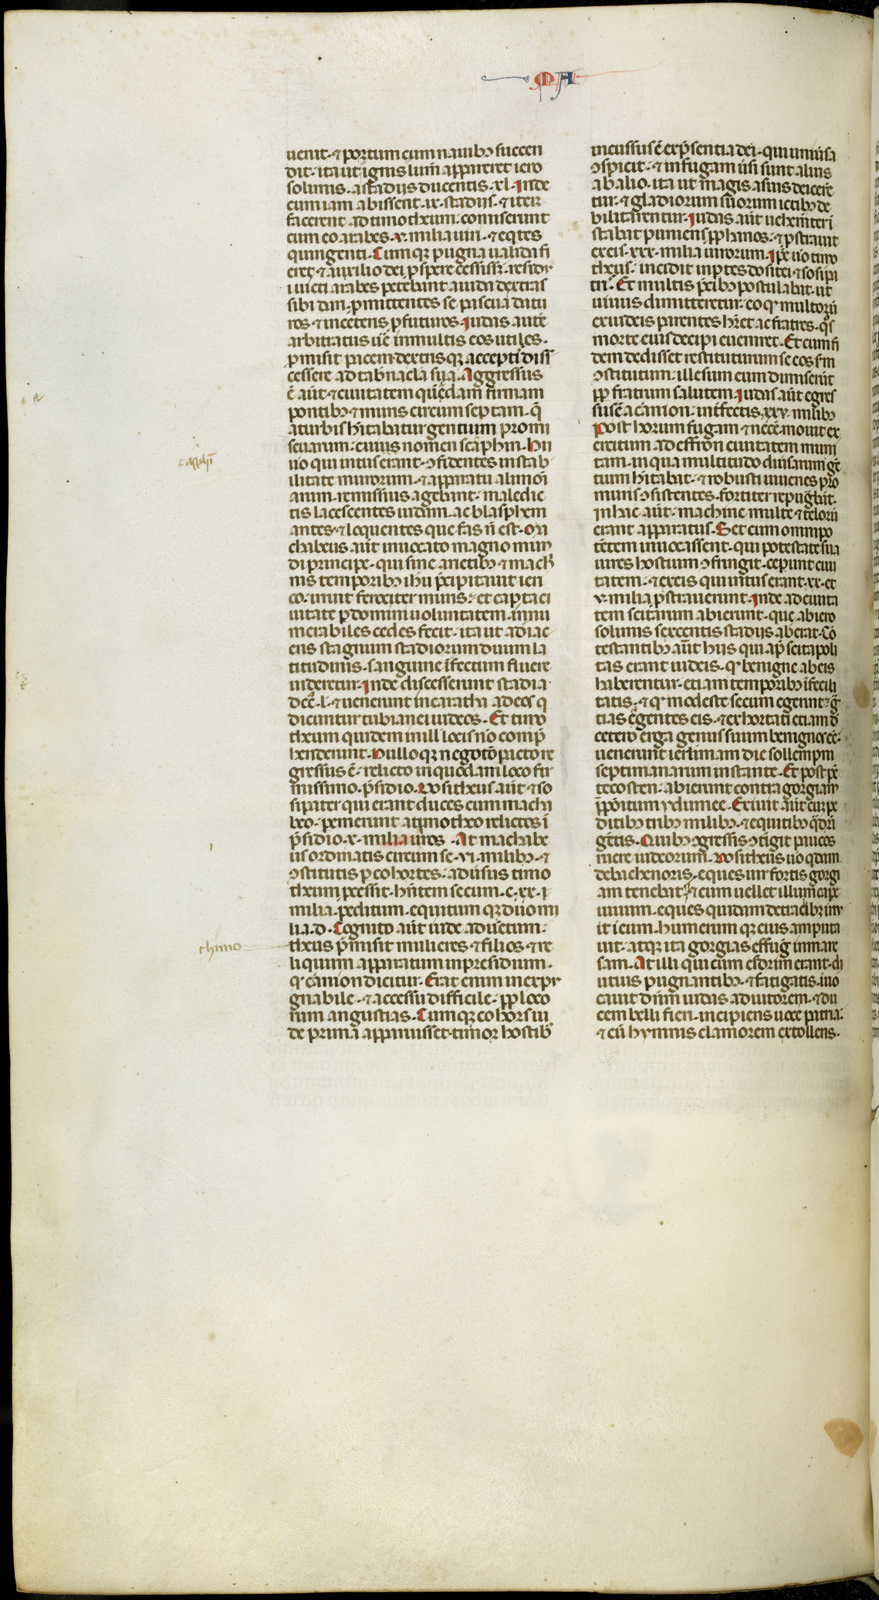 MA
uenit · ⁊ portum cum nauibꝫ succen
dit · ita ut ignis lum̄ appareret iero
solimis · a stadijs ducentis · xl · Inde
cum iam abissent · ix · stadijs · ⁊ iter
facerent ad timotheum · comiserunt
cum eo arabes · v · milia uiri · ⁊ eqͥtes
quingenti · Cumqꝫ pugna ualida fi
eret · ⁊ auxilio dei ꝓspere cessiss3 · resid
ui uicti arabes petebant a iuda dextras
sibi dari · ꝓmittentes se pascua datu
ros · ⁊ in ceteris ꝓfuturos · Iudas autē
arbitratus ue᷑ in multis eos utiles ·
ꝓmisit pacem · dextrisqꝫ acceptis diss
cessere ad tab᷑nacla sua · Aggressus
ē aūt · ⁊ ciuitatem quēdam firmam
pontibꝫ · ⁊ muris circum septam · q̄
a turbis h̄itabatur gentium promi
scuarum · cuius nomen scāphin · hii
uo qui intus erant · ↄfidentes in stab
ilitate murorum · ⁊ apparatu alimōi
arum · remissius agebant · maledic
tis lacescentes iudam · ac blasphem
antes · ⁊ loquentes que fas n̄ est · Ma
chabeus aūt inuocato magno mun
di principe · qui sine arietibꝫ ⁊ mach
nis temporibꝫ ihu p̄cipitauit ieri
co · irruit ferociter muris : · et capta ci
uitate ꝑ domini uoluntatem · innu
merabiles cedes fecit · ita ut adiac
ens stagnum stadiorum duum la
titudinis · sanguine ifectum fluere
uideretur · Inde discesserunt stadia ·
dcc · l · ⁊ uenerunt in caratha ad eos q
dicuntur tubianei iudeos · Et timo
theum quidem in ill locis nō comp̄
henderunt · Nulloqꝫ negotō ꝑfecto re
gressus ē · relicto in quodam loco fir
missimo · p̄sidio · Dositheus aūt · ⁊ so
sipater qui erant duces cum machi
beo · ꝑemerunt a timotheo relictos ī
p̄sidio · x · milia uiros · At machabe
us ordinatis circum se · vi · milibꝫ · ⁊
ↄstitutis ꝑ cohortes · aduisus timo
theum ꝓcessit · h̄ntem secum · c · xx · ·
milia · peditum · equitum qꝫ duo mi
lia · d · Cognito aūt iude aduētum ·
theus p̄misit mulieres · ⁊ filios · ⁊ re
thimo
liquum apparatum in presidium ·
qͩ carnion dicitur · Erat enim inexpu
gnabile · ⁊ accessu difficile · ꝓp̄ loco
rum angustias · Cumqꝫ cohors iu
de prima apparuisset · timor hostibꝫ
incussus ē ex p̄sentia dei · qui uniu᷑sa
ↄspicit · ⁊ in fugam u᷑si sunt alius
ab alio · ita ut magis a suis deicere
tur · ⁊ gladiorum suorum ictibꝫ de
bilitarentur · Iudas aūt uehem̄ter i
stabat puniens ꝓphanos · ⁊ ꝓstrauit
ex eis · xxx · milia uirorum · Ipe uo timo
theus · incidit in ptes dositei · ⁊ sosipi
tri · Et multis p̄cibꝫ postulabat · ut
uiuus dimitteretur · eo qͩ multorū
ex iudeis parentes h̄ret ac fratres · qͦs
morte eius decipi eueniret · Et cum fi
dem dedisset restituturum se eos s᷑m
ↄstitutum · illesum eum dimiserūt
ꝓp̄ fratrum salutem · Iudas aūt egres
sus ē a carnion · int᷑fectis · xxv · milibꝫ
Post horum fugam ⁊ necē · mouit ex
ercitum ad effron ciuitatem muni
tam · in qua multitudo diu᷑sarum gē
tium h̄itabat · ⁊ robusti iuuenes pro
muris ↄsistentes · fortiter repugbāt ·
in hac aūt · machine multe ⁊ telorū
erant apparatus · Set cum omnipo
tētem inuocassent · qui potestate sua
uires hostium ↄfringit · ceperunt ciui
tatem · ⁊ ex eis qui intus erant · xx · et
v · milia ꝓstrauerunt · Inde ad ciuita
tem scitarum abierunt · que ab iero
solimis sexcentis stadijs aberat · Cō
testantibꝫ aūt hiis qui ap̄ scitapoli
tas erant iudeis · qͩ benigne ab eis
haberentur · etiam temporibꝫ īfelici
tatis · ⁊ qͩ modeste secum egerint · gͣ
tias agentes eis · ⁊ exhortati etiam d
cetero erga genus suum benignos eē ·
uenerunt ierlimam die sollempni
septimanarum instante · Et post pē
tecosten · abierunt contra gorgiam
p̄positum ydumee · Exiuit aūt cum pe
ditibꝫ tribꝫ milibꝫ · ⁊ equitibꝫ qͣdri
gētis · Quibꝫ ↄgressis ↄtigit paucos
ruere iudeorum · Dositheus uo qͥdam
de bachenoris · eques uir fortis gorgi
am tenebat · ⁊ cum uellet illum cape
uiuum · eques quidam de tracibꝫ irru
it i eum · humerum qꝫ eius amputa
uit · atqꝫ ita gorgias effugit in mare
sam · At illi qui cum esdrim erant · di
utius pugnantibꝫ · ⁊ fatigatis · inuo
cauit dn̄m iudas adiutorem · ⁊ du
cem belli fieri · incipiens uoce patria ·
⁊ cū hymnis clamorem extollens ·